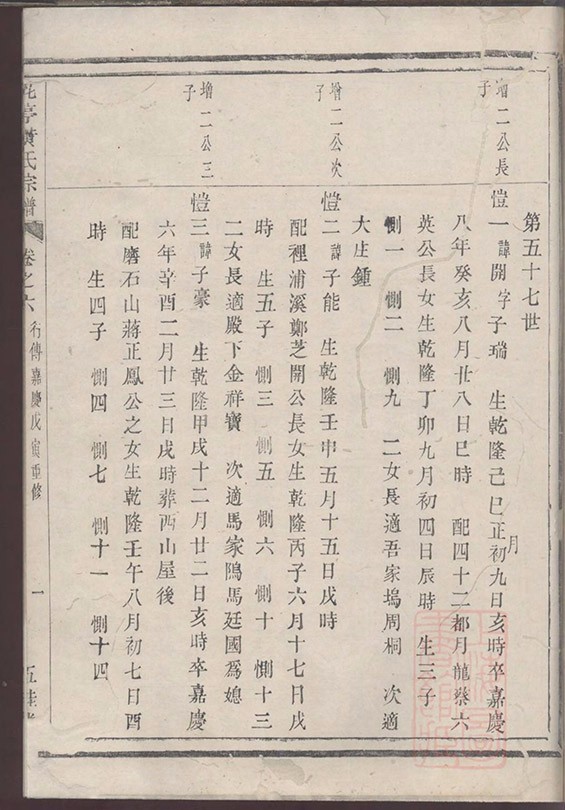 第五十七世
增二公長子
愷一 諱開字子瑞 生乾隆己巳正月初九日亥時卒嘉慶
八年癸亥八月廿八日巳時 配四十二都月龍蔡六
英公長女生乾隆丁卯九月初四日辰時 生三子
惻一 惻二 惻九 二女長適吾家塢周桐 次適
大庄鍾
增二公次子
愷二 諱子能 生乾隆壬申五月十五日戌時
配裡浦溪鄭芝開公長女生乾隆丙子六月十七日戌
時 生五子 惻三 惻五 惻六 惻十 惻十三
二女長適殿下金祥寶 次適馬家隖馬廷國為媳
增二公三子
愷三 諱子豪 生乾隆甲戌十二月廿二日亥時卒嘉慶
六年辛酉二月廿三日戌時葬西山屋後
配磨石山蔣正鳳公之女生乾隆壬午八月初七日酉
時 生四子 惻四 惻七 惻十一 惻十四
亭黃氏宗譜 卷之六 行傳嘉慶戊寅重修 一 五桂